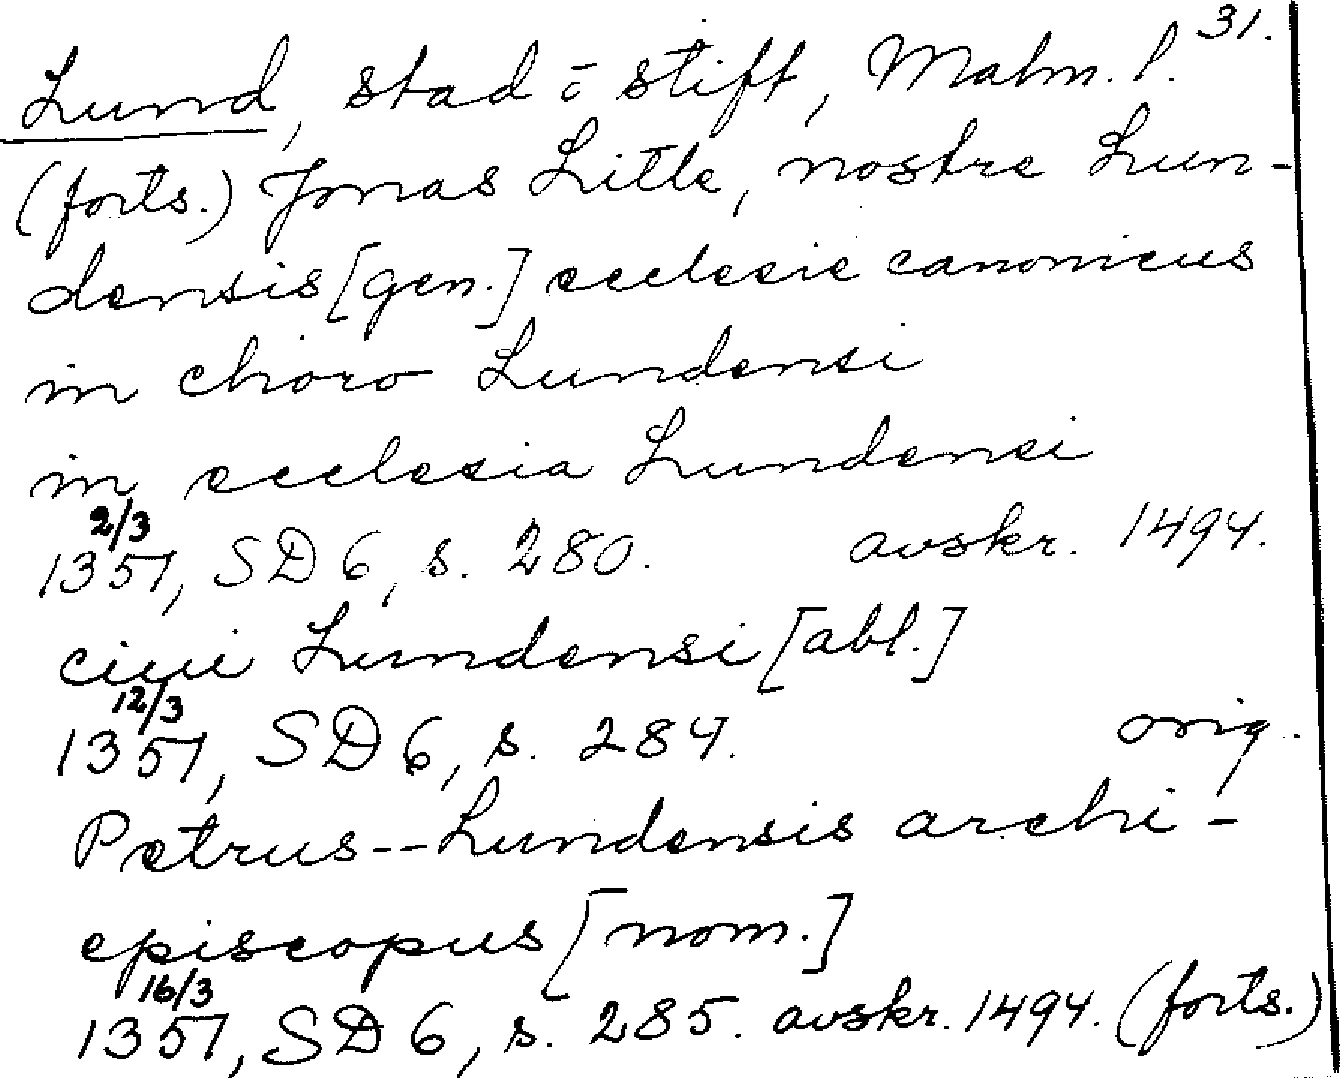 31.
Lund, stad o stift, Malm. l.
(forts.) Jonas Litle, nostre Lun-
densis [gen.] ecclesie canonicus
in choro Lundensi
in ecclesia Lundensi
2/3
1351, SD 6, s. 280. avskr. 1494.
ciui Lundensi [abl.]
12/3
1351, SD 6, s. 284. orig.
Petrus--Lundensis archi-
episcopus [nom.]
16/3
1351, SD 6, s. 285. avskr. 1494. (forts.)